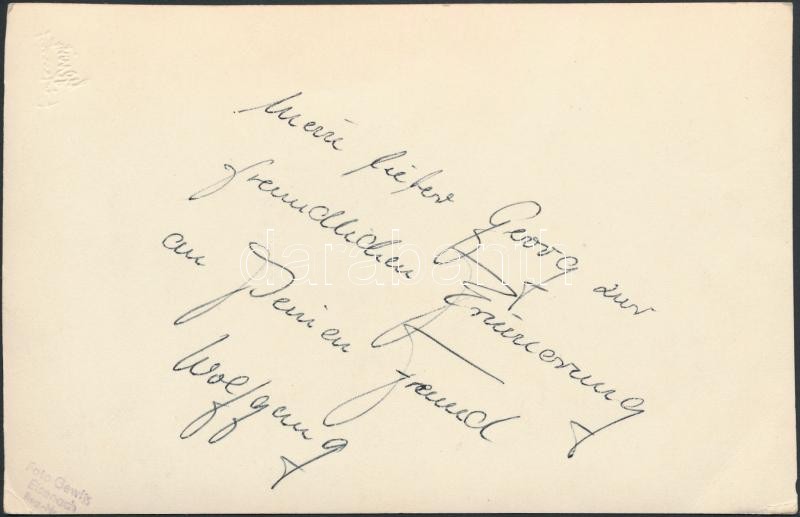 Mein lieber Georg zur
freundlichen Erinnerung
an Deinen Freund
Wolfgang
darabanth
Foto Gewitz
Eisenach